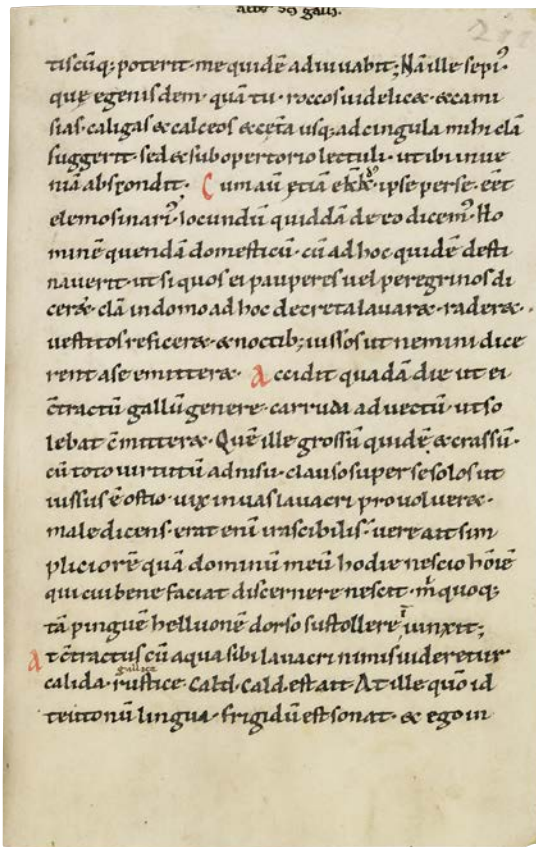 abbe sci galli.
211
tiscūq; poterit· me quidē adiuuabit; Nā ille sepi᾽
que egenis dem· quā tu· roccos uidelicꝫ· & cami
sias· caligas & calceos & cęta usq; ad cingula mihi clā
suggerit· sed & sub opertorio lectuli· ut ibi inue
niā abscondit· Cum aū &iā ekk᾽ ipse per se· eēt
elemosinari᾽· Iocundū quiddā de eo dicem᾽· Ho
minē quendā domesticū· cū ad hoc quidē desti
nauerit· ut si quos ei pauperes uel peregrinos di
cer&· clā in domo ad hoc decreta lauar&· rader&·
uestitos reficer&· & noctib; iussos ut nemini dice
rent a se emitter&· Accidit quadā die ut ei
c̄tractū gallū genere· carruca aduectū· ut so
lebat c̄mitter&· Quē ille grossū quidē & crassū·
cū toto uirtutū adnisu· clauso super se solos ut
iussus ē ostio· uix in uas lauacri prouoluer&·
maledicens· erat enī irascibilis· uere ait sim
pliciorē quā dominū meū hodie nescio hoīē
qui cui bene faciat discernere nescit· m̄ quoq;
tā pinguē helluonē dorso sustollere iunxit;
At c̄tractus cū aqua sibi lauacri nimis uideretur
gallice
calida· rustice· Cald· Cald· est ait· At ille quō id
teutonū lingua· frigidū est sonat· & ego in